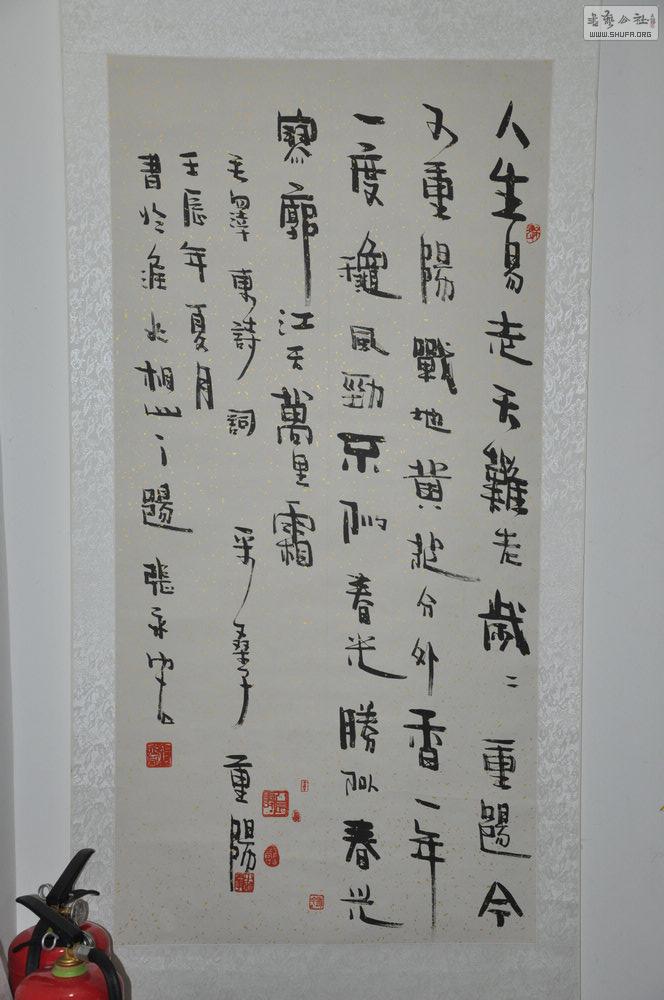 人生易老天難老歲二重陽今
又重陽戰地黃花分外香一年
一度穐風勁不似春光勝似春光
寥廓江天萬里霜
毛澤東詩詞 采桑子 重陽
壬辰年夏月
書於淮北相山之陽 張永
书艺公社
WWW.SHUFA.ORG